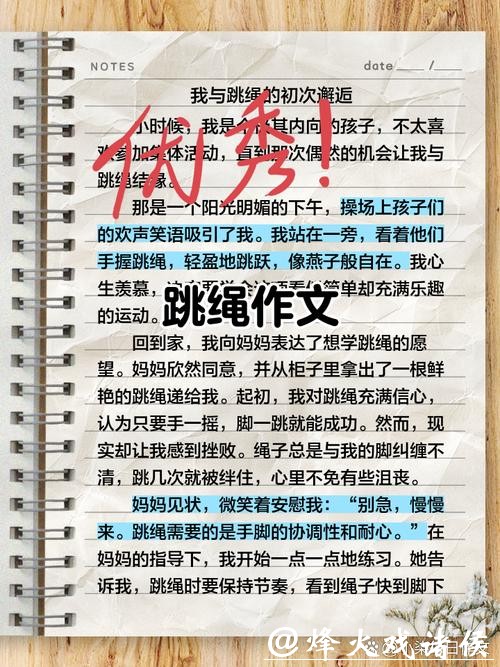 NOTES
date ____ / ____
我与跳绳的初次邂逅
优秀!
小时候，我是个极其内向的孩子，不太喜
欢参加集体活动，直到那次偶然的机会让我与
跳绳结缘。
那是一个阳光明媚的下午，操场上孩子们
的欢声笑语吸引了我。我站在一旁，看着他们
手握跳绳，轻盈地跳跃，像燕子般自在。我心
生羡慕，
简单却充满乐趣
的运动。
跳绳作文
回到家，我向妈妈表达了想学跳绳的愿
望。妈妈欣然同意，并从柜子里拿出了一根鲜
艳的跳绳递给我。起初，我对跳绳充满信心，
认为只要手一摇，脚一跳就能成功。然而，现
实却让我感到挫败。绳子总是与我的脚纠缠不
清，跳几次就被绊住，心里不免有些沮丧。
妈妈见状，微笑着安慰我：“别急，慢慢
来。跳绳需要的是手脚的协调性和耐心。”在
妈妈的指导下，我开始一点一点地练习。她告
诉我，跳绳时要保持节奏，看到绳子快到脚下
@烽火戏诸侯